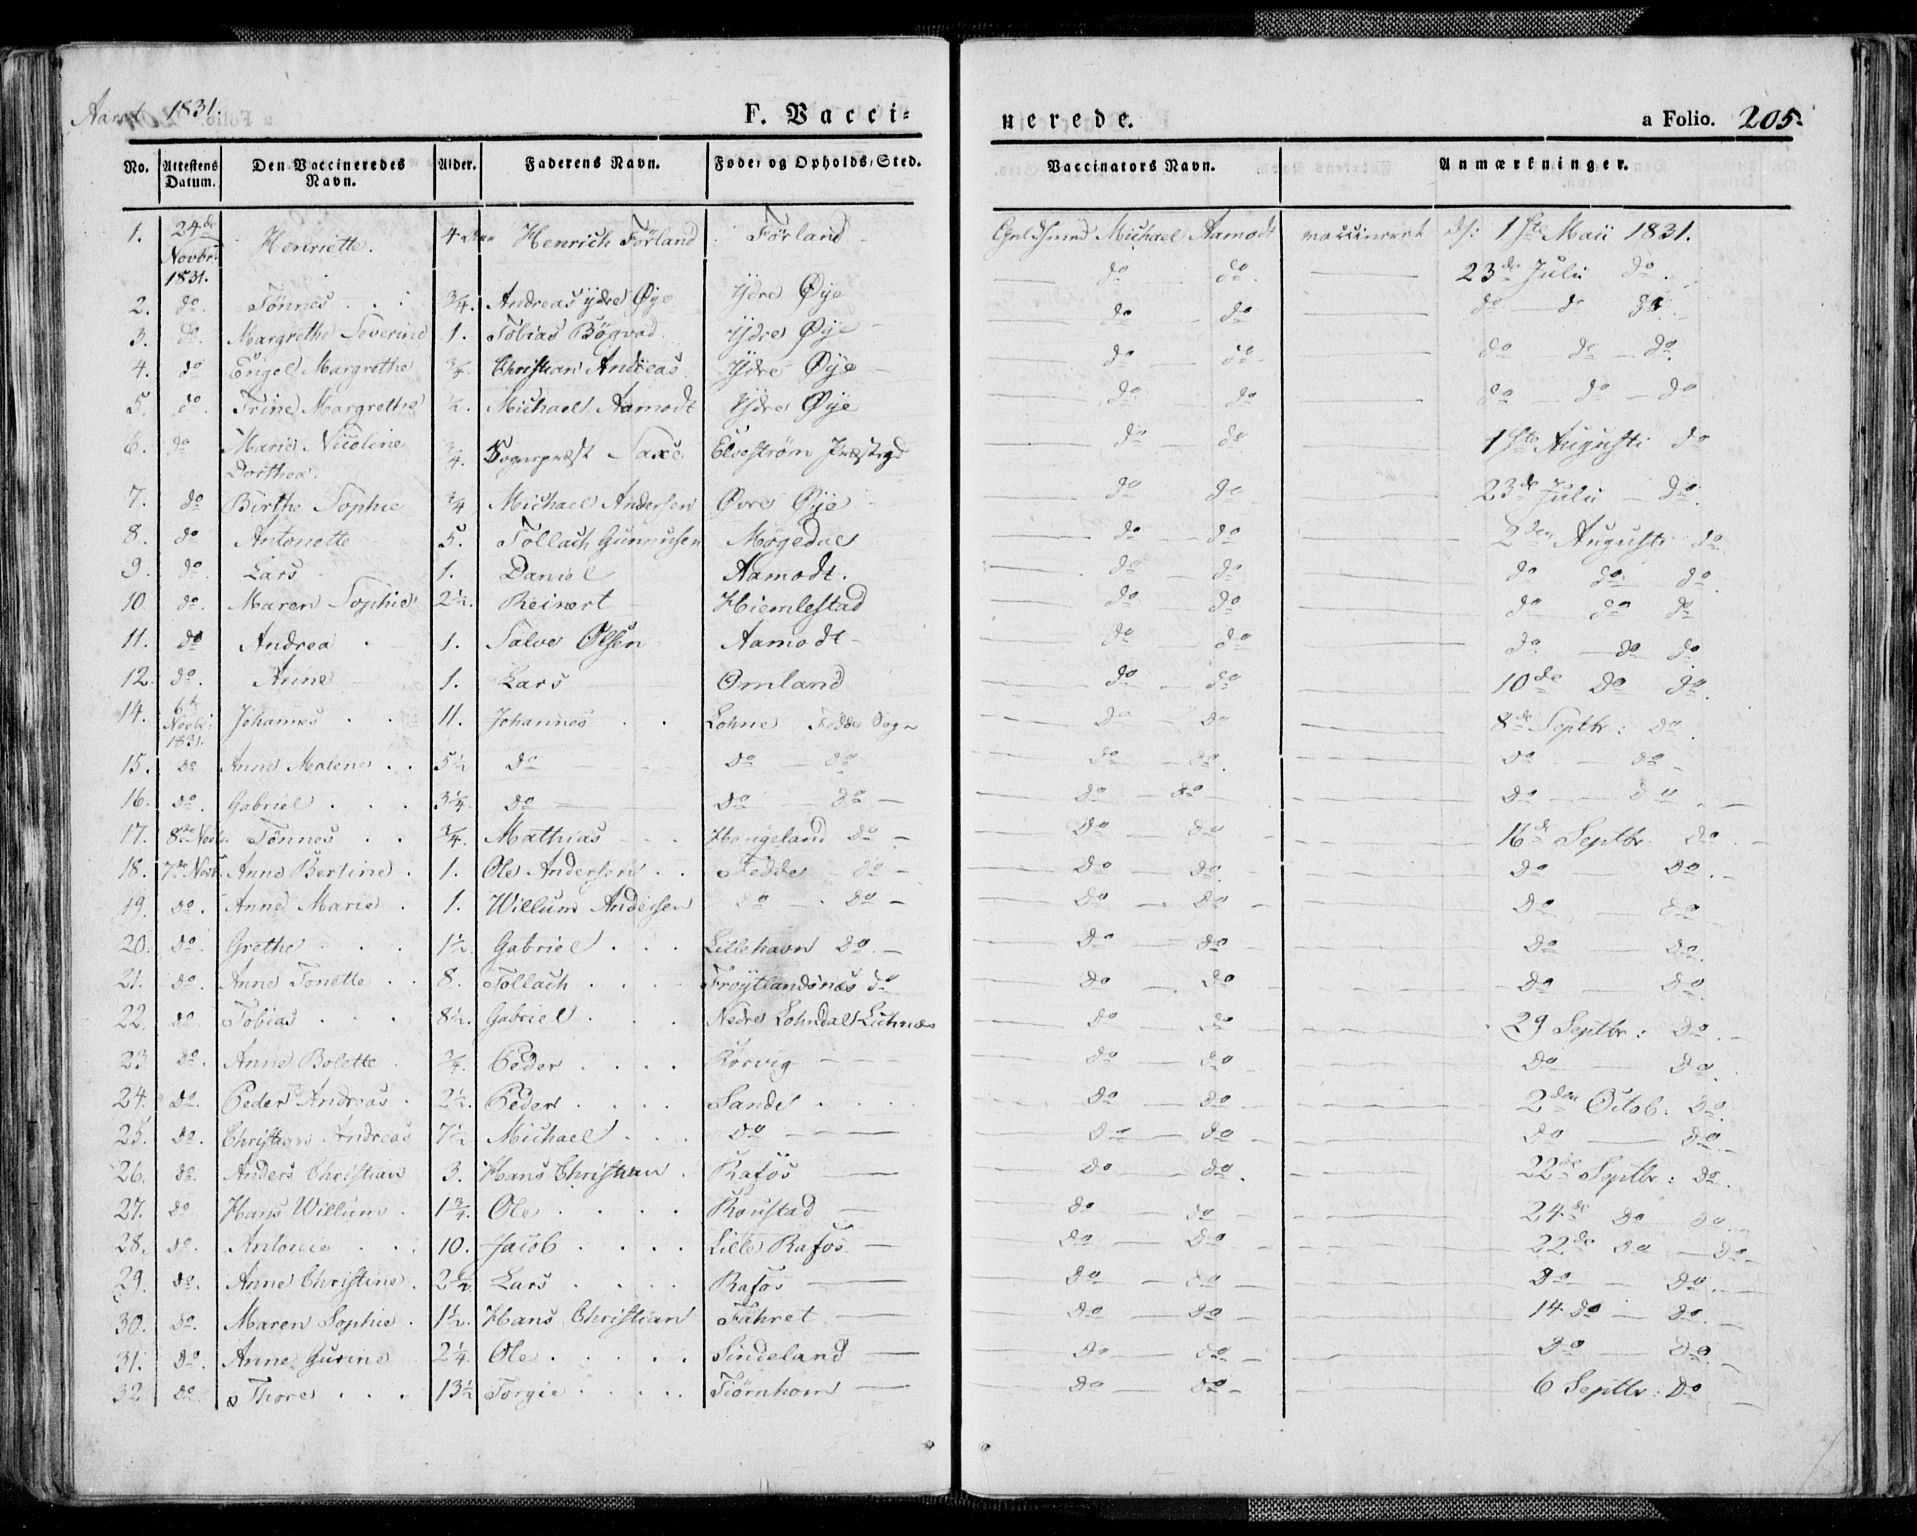 Aaret 1831. F. Vaccinerede. a Folio. 205.
No. Attestens Datum. Den Vaccineredes Navn. Alder. Faderens Navn. Føde- og Opholds-Sted. Vaccinators Navn. Anmærkninger.
1. 24de Novbr: 1831. Henriette. 4 Henrich Førland Førland Michael Aamodt vaccineret d: 1ste Maii 1831.
2. do. Tønnes 3/4. Andreas ydre Øye Ydre Øye do do 23de Julii do.
3. do. Margrethe Severine 1. Tobias Bøgvad Ydre Øye do do do do do
4. do Engel Margrethe 3/4. Christian Andreas Ydre Øye do do do do do.
5. do. Trine Margrethe 1/2. Michael Aamodt Ydre Øye do do do do do
6. do Marie Nicoline Dorthea. 3/4. Sogneprest Saxe Elvestrøm Præstegd do do 1ste Augusti do
7. do Birthe Sophie 3/4 Michael Andersen Øvre Øye do do 23de Julii do.
8. do Antonette 5. Tollach Gunnusen Møgedal do do 2den Augusti do
9. do. Lars 1. Daniel Aamodt. do do do do do.
10. do. Maren Sophie 2 1/2. Reinert Hiemlestad do do do do do
11. do Andrea 1. Salve Olsen Aamodt do do do do do
12. do. Anne 1. Lars Omland do do 10de do do.
14. 6te Novbr: 1831. Johannes 11. Johannes Lohne Fedde Sogn do do 8de Septbr: do.
15. do Anne Malene 5 1/2 do do do do do. do do
16. do. Gabriel 3 1/4. do do do do do do do.
17. 8de Novb. Tønnes 3/4. Mathias Haugeland do do do 16de Septbr do.
18. 7de Novb. Anne Bertine 1. Ole Andersen Fedde do do do. do do.
19. do. Anne Marie 1. Willum Andersen do do do do do do
20. do. Grethe 1 1/2. Gabriel Lillehavn do. do do do do.
21. do. Anne Tonette 8. Tollach Frøytlandsnæs do do do do do
22. do. Tobias 8 1/2. Gabriel Nedre Lohndal Liknæs do do 29 Septbr: do.
23 do. Anne Bolette 3/4. Peder Rørvig do do do do.
24. do. Peder Andreas 2 1/2. Peder Sande do do. 2den Octob: do.
25. do. Christian Andreas 7 1/2 Michael do do do do do.
26. do. Anders Christian 3. Hans Christian Rafos do do. 22de Septbr: do.
27. do Hans Willum 1 3/4. Ole Røustad do do 24de do do.
28. do. Antonie 10. Jacob Lille Rafos do do 22de do do.
29. do. Anne Christine 2 1/2. Lars Rafos do do do do.
30. do. Maren Sophie 1 1/2. Hans Christian Fahret do do 14 do do.
31. do. Anne Gurine 2 1/4. Ole Sindeland do do do do.
32. do Thore 13 1/2 Torgie Tiørnhom do do 6 Septbr: do